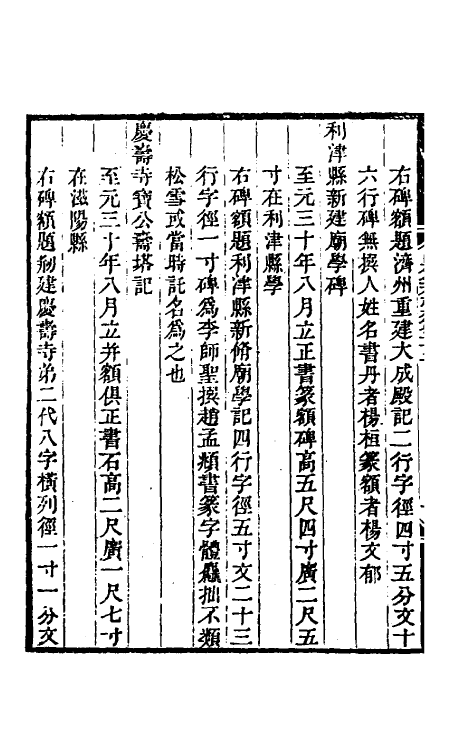 右碑額題濟州重建大成殿記二行字徑四寸五分文十
六行碑無撰人姓名書丹者楊桓篆額者楊文郁
利津縣新建廟學碑
至元三十年八月立正書篆額碑高五尺四寸廣二尺五
寸在利津縣學
右碑額題利津縣新脩廟學記四行字徑五寸文二十三
行字徑一寸碑爲李師聖撰趙孟頫書篆字體麤拙不類
松雪或當時託名爲之也
慶壽寺寶公齋塔記
至元三十年八月立并額俱正書石高二尺廣一尺七寸
在滋陽縣
右碑額題剏建慶壽寺弟二代八字橫列徑一寸一分文